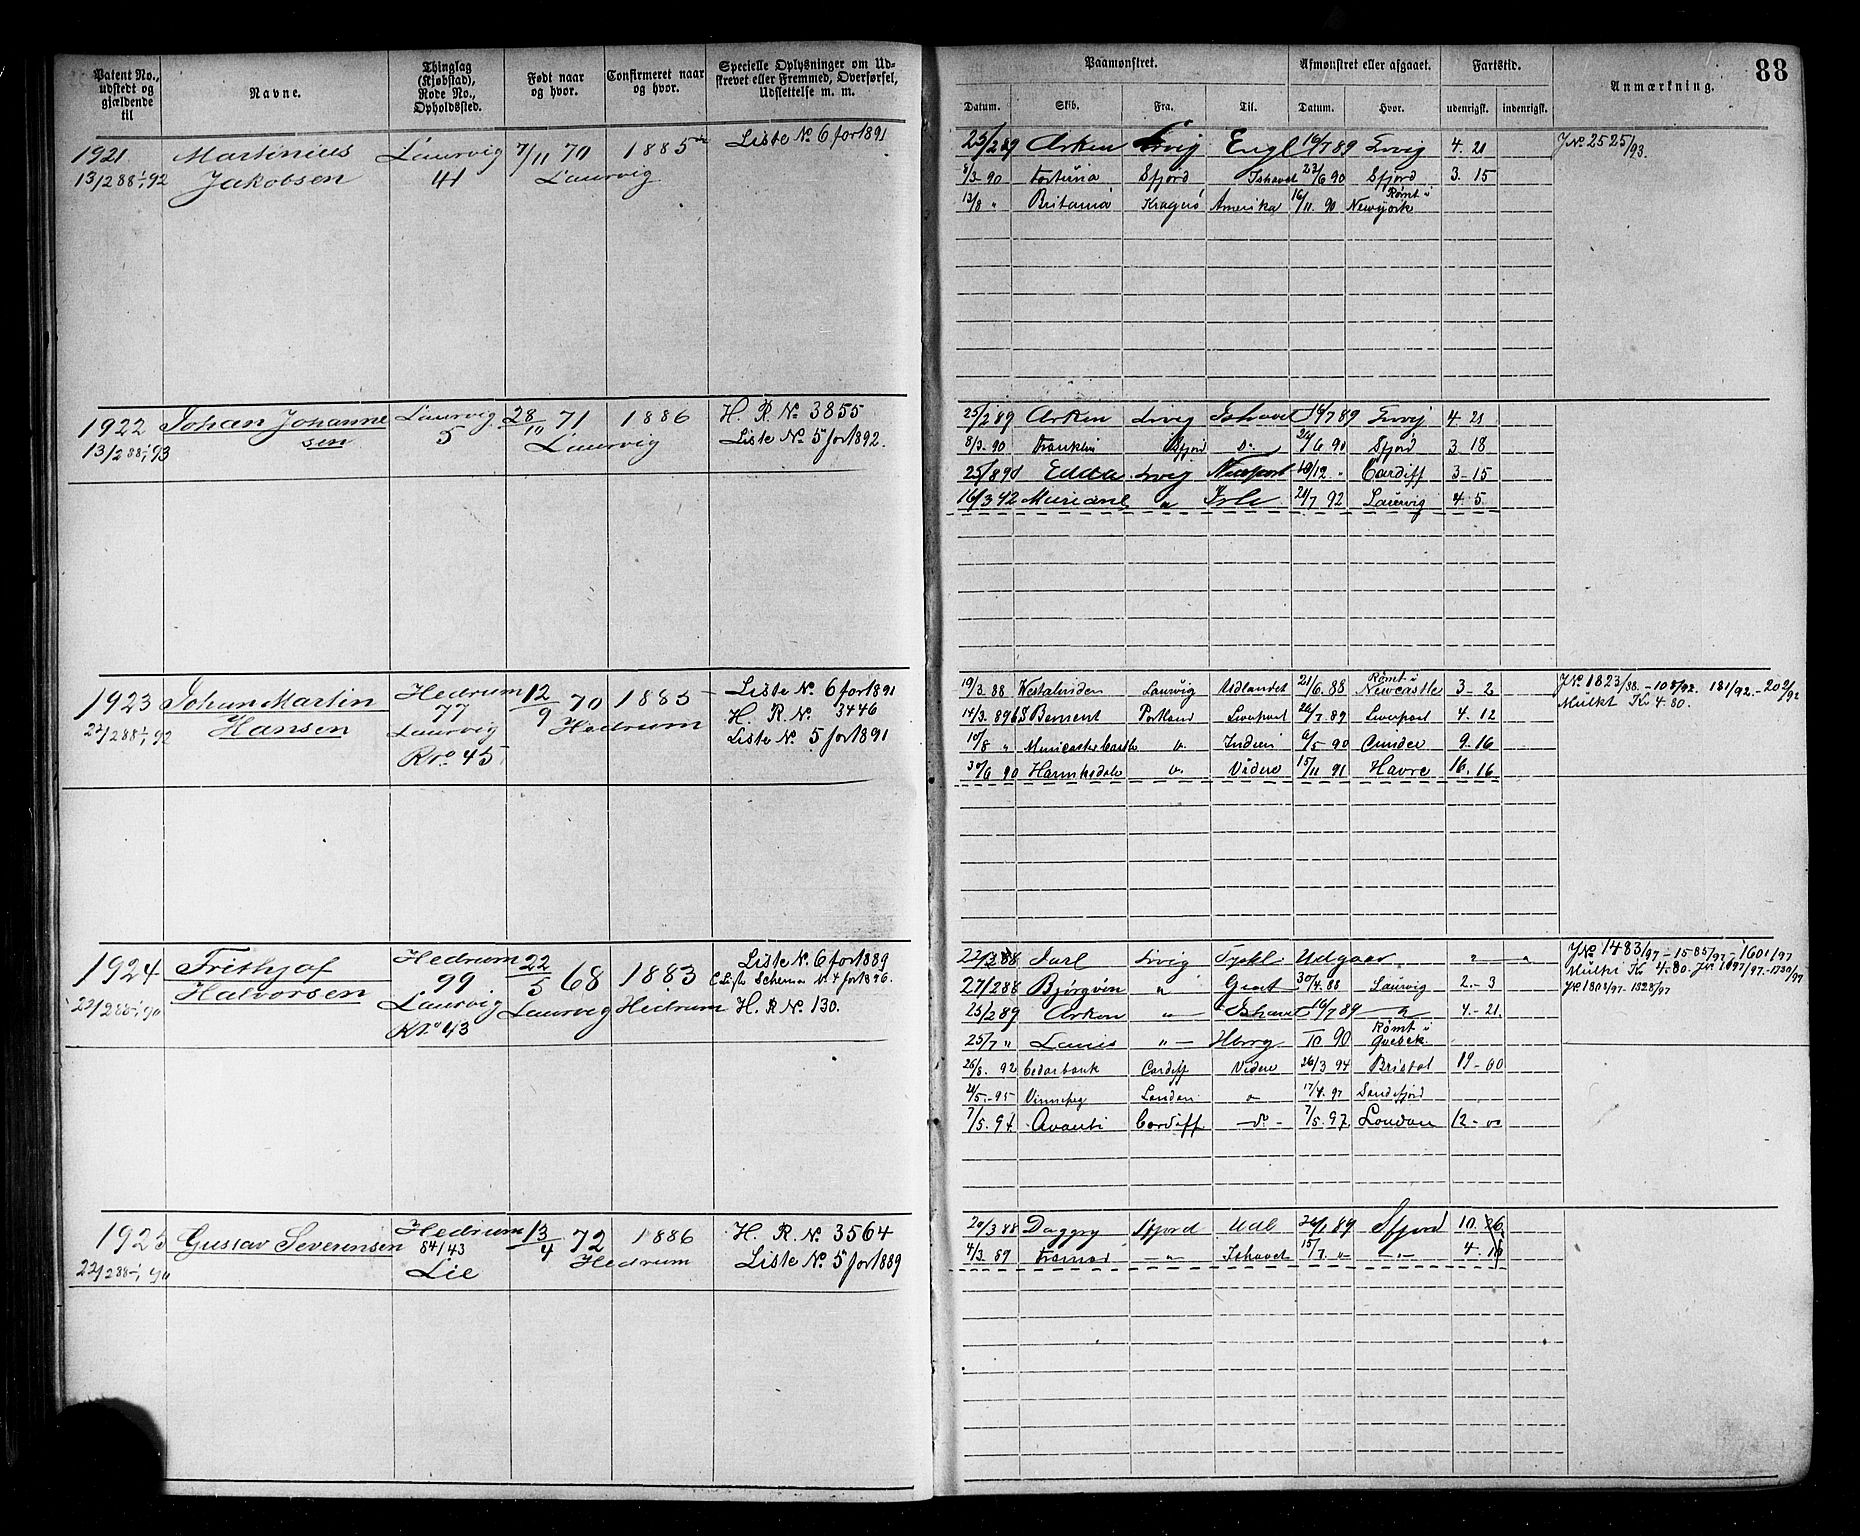 Patent No., udstedt og gjældende til
Navne.
Thinglag (Kjøbstad), Rode No., Opholdssted.
Født naar og hvor.
Confirmeret naar og hvor.
Specielle Oplysninger om Udskrevet eller Fremmed, Overførsel, Udslettelse m. m.
Paamønstret.
Afmønstret eller afgaaet.
Fartstid.
Anmærkning.
88
Datum. Skib. Fra. Til. Datum. Hvor. udenrigsk. indenrigsk.
1921 Martinius Laurvig 7/11 70 1885 Liste No 6 for 1891
13/2 88 1/1 92 Jakobsen 41 Laurvig
25/2 89 Arken Lrvig Engl 16/7 89 Lrvig 4. 21 JNo 2525/93.
8/3. 90 Fortuna Sfjord Ishavet 22/6 90 Sfjord 3. 15
13/8 " Britania Kragerö Amerika 16/11. 90 Rømt i Newyork
1922 Johan Johanne Laurvig 28/10 71 1886 H. R. No 3855
13/2 88 1/1 93 sen 5 Laurvig Liste No 5 for 1892.
25/2 89 Arken Lrvig Ishavet 16/7 89 Lrvig 4. 21
8/3. 90 Franklin Sfjord do 24/6 90 Sfjord 3 18
25/8 90 Edda Lrvig Newport 10/12 " Cardiff 3-15
16/3 92 " 21/7 92 Laurvig 4. 5
1923 Johan Martin Hedrum 12/9 70 1885 Liste No 6 for 1891
22/2 88 1/1 92 Hansen 77 Hedrum H. R. No 3446
Laurvig Liste No 5 for 1891
R No 45
19/3. 88 Laurvig Udlandet 21/6. 88 Rømt i Newcastle 3-2 JNo 1823/88.-108/92. 181/92.-202/92
14/3. 89 Bement Portland Liverpool 26/7. 89 Liverpool 4. 12 Mulkt Kr 4.80.
10/8 " Muncaster Castle " Indien 6/5 90 9. 16
30/6 90 " Videre 15/11 91 Havre 16. 16
1924 Frithjof Hedrum 22/5 68 1883 Liste No 6 for 1889
22/2 88 1/1 90 Halvorsen 99 Laurvig Hedrum C Liste Schema No 4 for 1896.
Laurvig H. R No 130.
R No 43
22/3 88 Jarl Lrvig Tyskl Udgaar " " JNo 1483/97-1585/97-1601/97
27/2 88 Bjørgvin " Gent 30/4. 88 Laurvig 2.-3 Mulkt Kr 4.80. JNo 1697/97.-1730/97
25/2 89 Arken " Ishavet 16/7 89 " 4.-21. JNo 1808/97-1828/97
25/7 " " 10 90 Rømt i
26/8. 92 Cedarbank Cardiff Videre 26/3 94 Bristol 19-00
21/5.-95 Vinnepeg London " 17/4. 97 Sandefjord
7/5. 97 Avanti Cardiff do 7/5. 97 London 12-00
1925 Gustav Severinsen Hedrum 13/4 72 1886 H. R. No 3564
22/2 88 1/1 90 84/43 Hedrum Liste No 5 for 1889
Lie
20/3 88 Daggry Sfjord Udl 26/1 89 Sfjord 10. 26
4/3. 89 " Ishavet 15/7. " " 4.